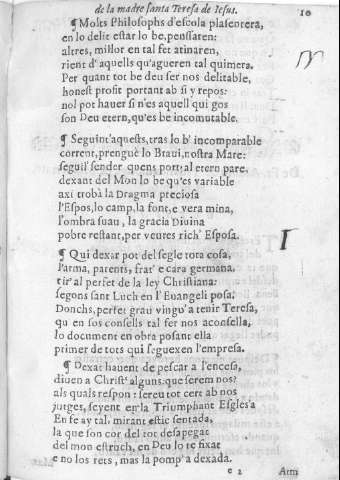 de la madre santa Teresa de Iesus. 10
¶ Molts Philosophs d'escola plasentera,
en lo delit estar lo be, pensaren:
altres, millor en tal fet atinaren,
rient d'aquells qu'agueren tal quimera.
Per quant tot be deu ser nos delitable,
honest profit portant ab si y repos:
nol pot hauer si n'es aquell qui gos
son Deu etern, qu'es be incomutable.
¶ Seguint'aquests, tras lo b'incomparable
corrent, prenguè lo Braui, nostra Mare:
seguil' sender quens porta al etern pare,
dexant del Mon lo be qu'es variable
axi trobà la Dragma preciosa
l'Espos, lo camp, la font, e vera mina,
l'ombra suau, la gracia Diuina
pobre restant, per veures rich'Esposa.
¶ Qui dexar pot del segle tota cosa,
l'arma, parents, frar' e cara germana,
tir' al perfet de la ley Christiana:
segons sant Luch en l'Euangeli posa.
Donchs, perfet grau vingu'a tenir Teresa,
qu en sos consells tal fer nos aconsella,
lo document en obra posant ella
primer de tots qui seguexen l'empresa.
¶ Dexat hauent de pescar a l'encesa,
diuen a Christ' alguns: que serem nos?
als quals respon: sereu tot cert ab nos
jutges, seyent en la Triumphant Esglesia
En fe ay tal, mirant estic sentada,
la que son cor del tot desapegat
del mon estruch, en Deu lo te fixat
e no los rets, mas la pomp'a dexada.
e 2 Atm